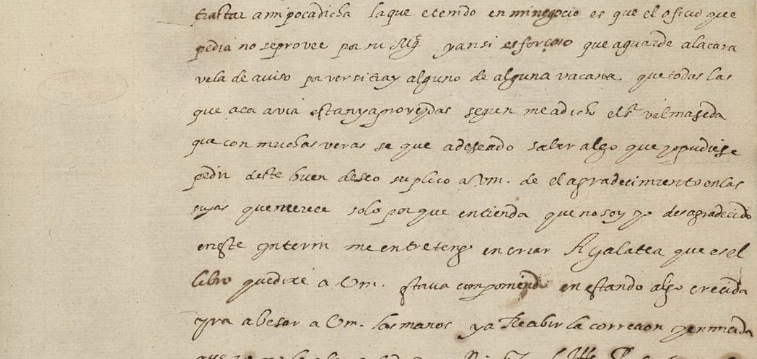 tratar a mi poca dicha la que e tenido en mi negocio es que el oficio que
pedia no se provee pa su Mgd yansi es forçoso que aguarde a la cara
vela de aviso pa ver si tray alguno de alguna vacante que todas las
que aca avia estan ya proveydas segun me a dicho el sr valmaseda
que con muchas veras se que a deseado saber algo que yo pudiese
pedir deste buen deseo suplico a Vm. de el agradecimiento en las
suyas que merece solo porque entienda que no soy yo desagradecido
en este ynterin me entretengo en criar A galatea que es el
libro que dixe a Vm. estava componiendo en estando algo crecida
yra a besar a Vm. las manos ya Recibir la correcion y enmienda